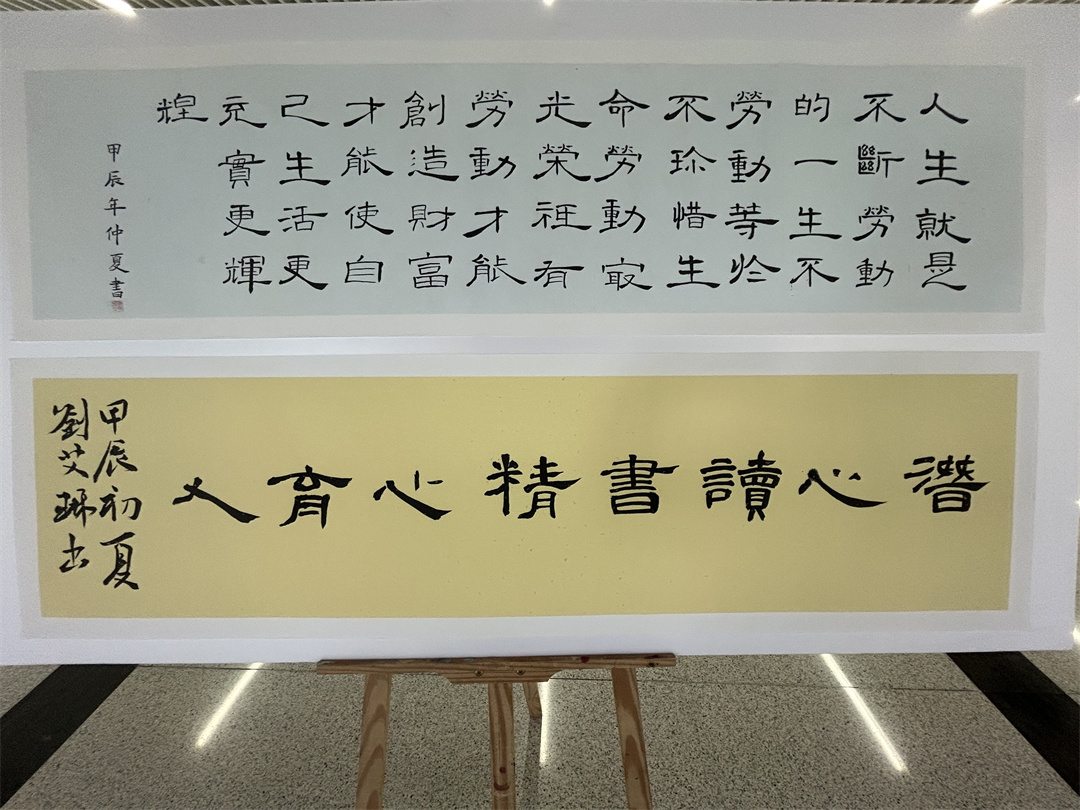 人生就是
不斷勞動
的一生不
勞動等於
不珍惜生
命勞動最
光榮祇有
勞動才能
創造財富
才能使自
己生活更
充實更輝
煌
甲辰年仲夏書
潛心讀書精心育人
甲辰初夏
劉艾琳书